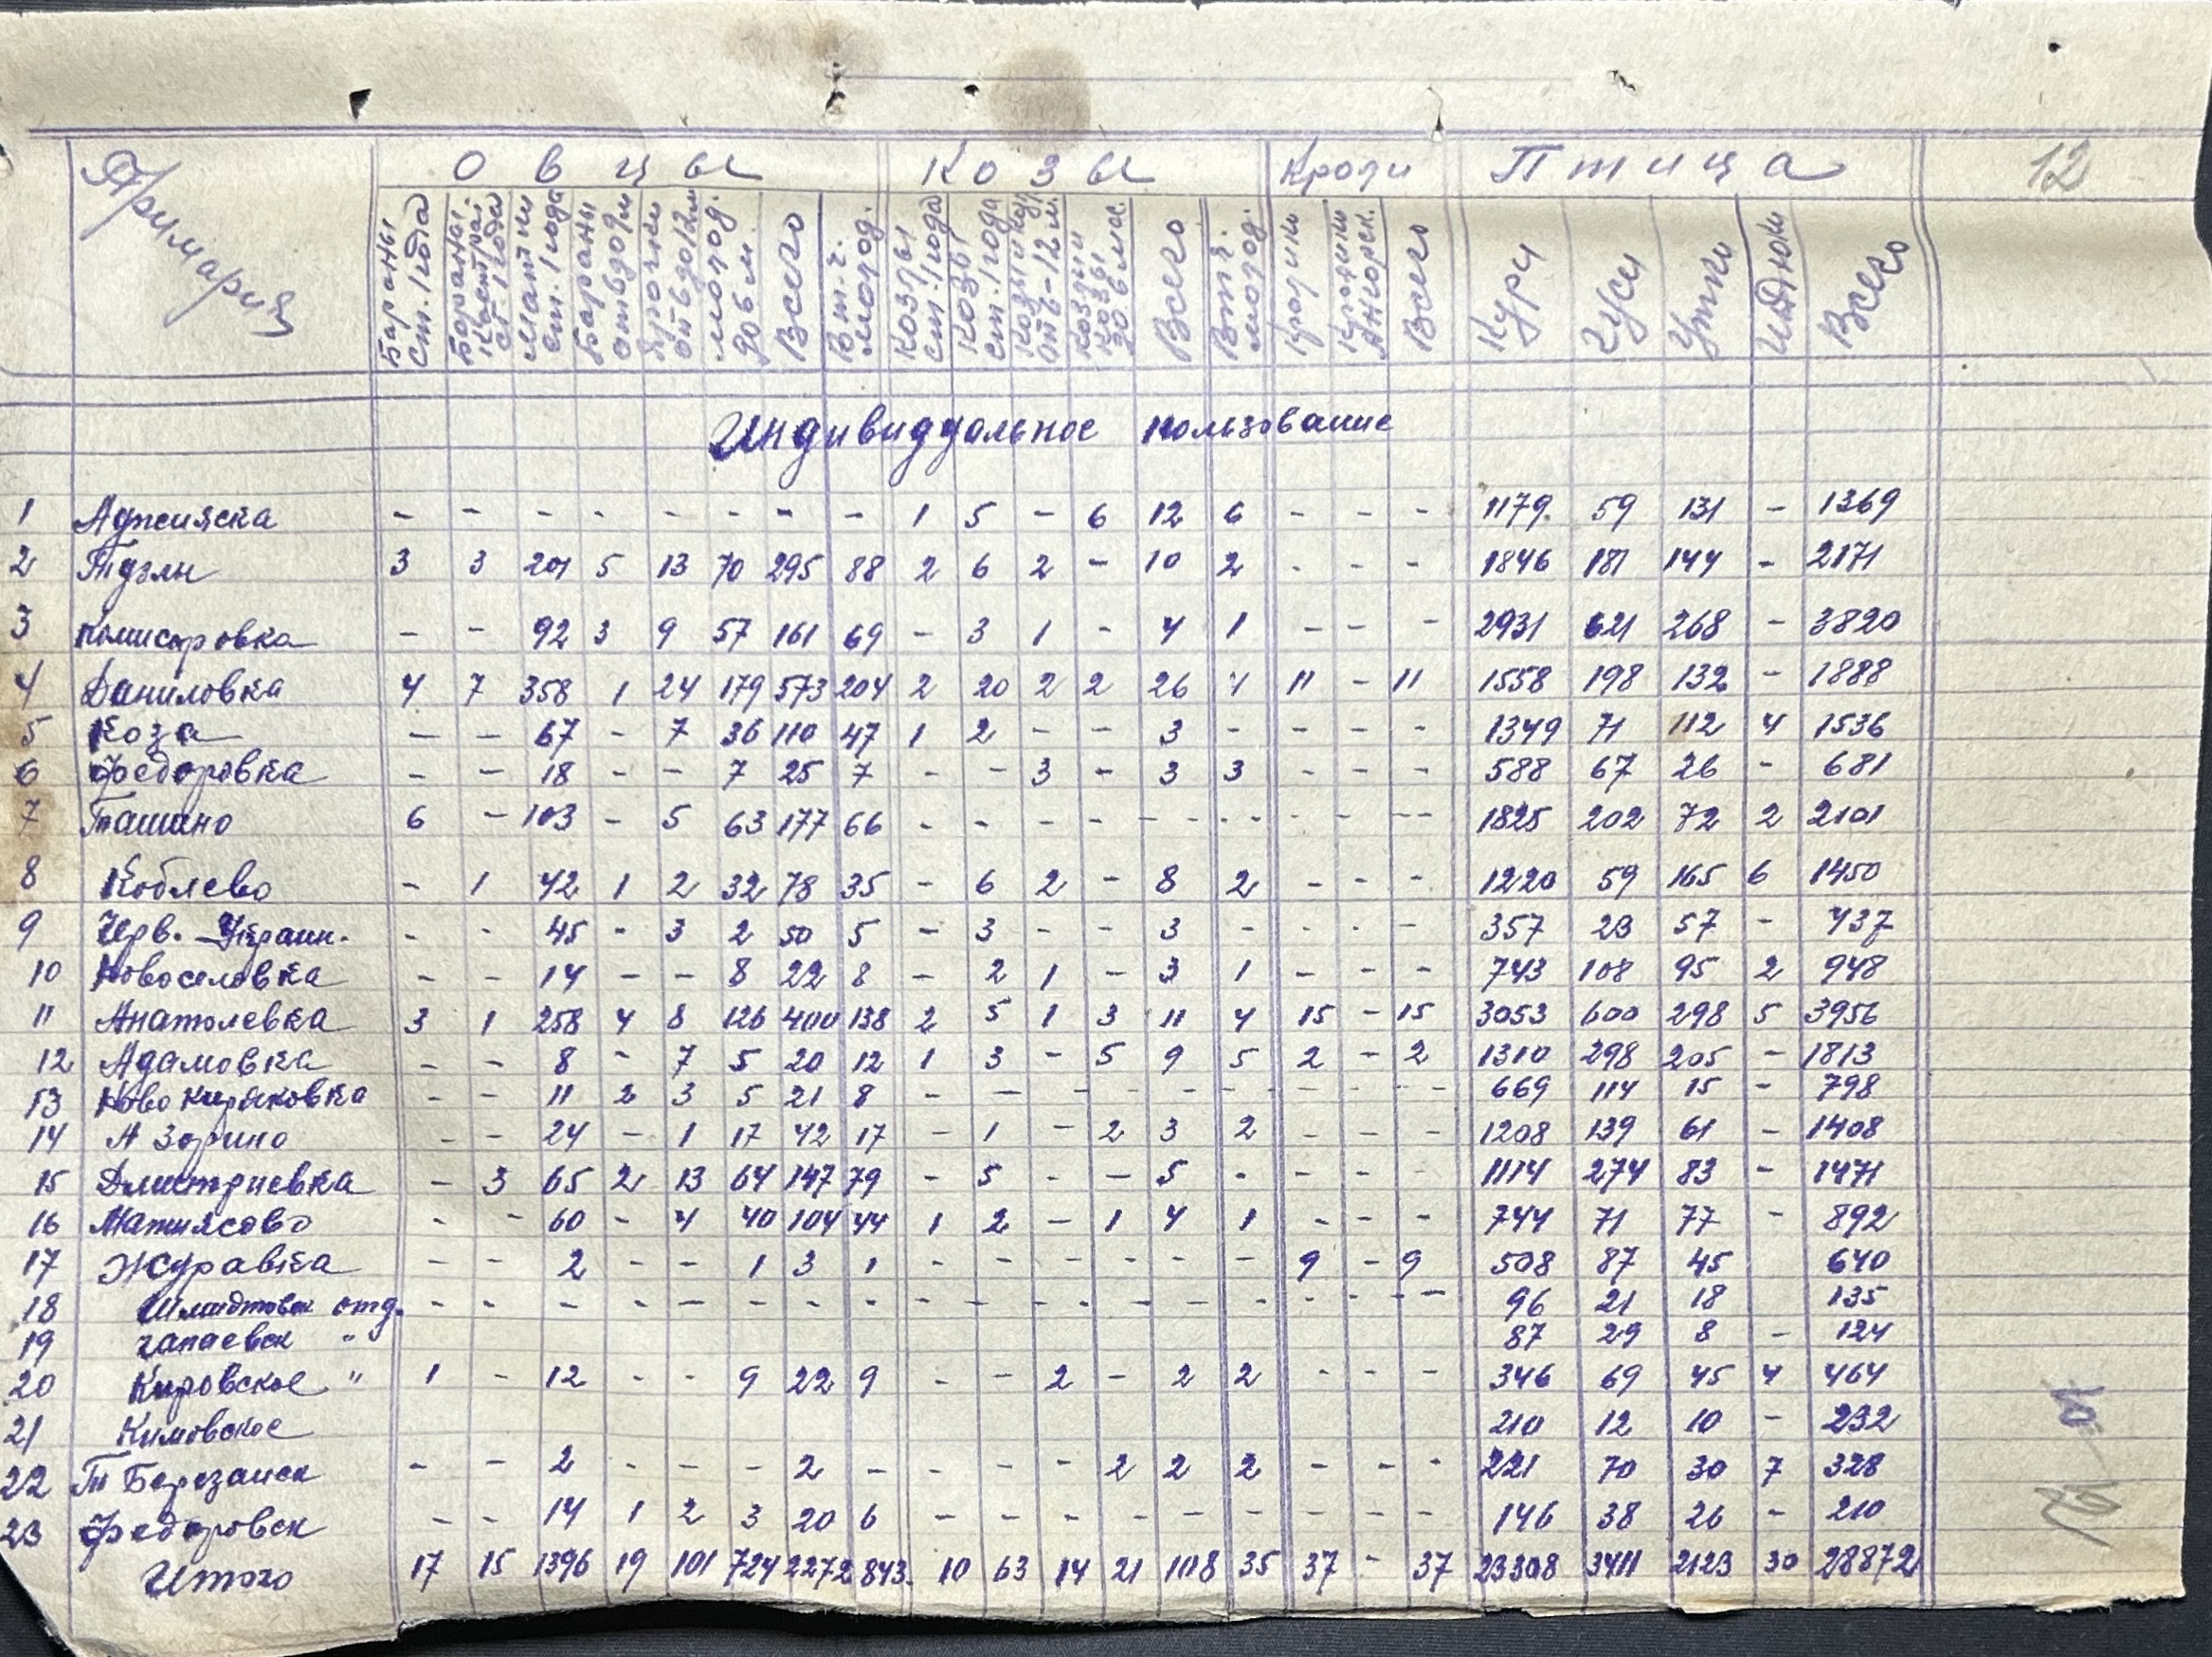 12
Примария Овцы Козы Кроли Птица
Бараны ст. 1 года Бараны кастрат. ст. 1 года Матки ст. 1 года Бараны от 6 до 12 м Ярочки от 6 до 12 м молод. до 6 м. Всего В т. ч. молод. Козлы ст. 1 года Козы ст. 1 года Козлики от 6-12 м. Козлики козы до 6 мес. Всего В т. ч. молод. Кролики Кролики Ангорск. Всего Куры Гуси Утки Индюки Всего
Индивидуальное пользование
1 Аджияска - - - - - - - - 1 5 - 6 12 6 - - - 1179 59 131 - 1369
2 Тузлы 3 3 201 5 13 70 295 88 2 6 2 - 10 2 - - - 1846 181 144 - 2171
3 Комисаровка - - 92 3 9 57 161 69 - 3 1 - 4 1 - - - 2931 621 268 - 3820
4 Даниловка 4 7 358 1 24 179 573 204 2 20 2 2 26 4 11 - 11 1558 198 132 - 1888
5 Коза - - 67 - 7 36 110 47 1 2 - - 3 - - - - 1349 71 112 4 1536
6 Федоровка - - 18 - - 7 25 7 - - 3 - 3 3 - - - 588 67 26 - 681
7 Ташино 6 - 103 - 5 63 177 66 - - - - - - - - - 1825 202 72 2 2101
8 Коблево - 1 42 1 2 32 78 35 - 6 2 - 8 2 - - - 1220 59 165 6 1450
9 Черв. Украин. - - 45 - 3 2 50 5 - 3 - - 3 - - - - 357 23 57 - 437
10 Новоселовка - - 14 - - 8 22 8 - 2 1 - 3 1 - - - 743 108 95 2 948
11 Анатолевка 3 1 258 4 8 126 400 138 2 5 1 3 11 4 15 - 15 3053 600 298 5 3956
12 Адамовка - - 8 - 7 5 20 12 1 3 - 5 9 5 2 - 2 1310 298 205 - 1813
13 Ново Киряковка - - 11 2 3 5 21 8 - - - - - - - - - 669 114 15 - 798
14 А Зорино - - 24 - 1 17 42 17 - 1 - 2 3 2 - - - 1208 139 61 - 1408
15 Дмитриевка - 3 65 2 13 64 147 79 - 5 - - 5 - - - - 1114 274 83 - 1471
16 Матиясово - - 60 - 4 40 104 44 1 2 - 1 4 1 - - - 744 71 77 - 892
17 Журавка - - 2 - - 1 3 1 - - - - - - 9 - 9 508 87 45 640
18 Шмидтовск отд. - - - - - - - - - - - - - - - - - 96 21 18 135
19 Чапаевск " 87 29 8 - 124
20 Кировское " 1 - 12 - - 9 22 9 - - 2 - 2 2 - - - 346 69 45 4 464
21 Кимовское 210 12 10 - 232
22 Т Березанск - - 2 - - - 2 - - - - 2 2 2 - - - 221 70 30 7 328
23 Федоровск - - 14 1 2 3 20 6 - - - - - - - - - 146 38 26 - 210
Итого 17 15 1396 19 101 724 2272 843. 10 63 14 21 108 35 37 - 37 23308 3411 2123 30 28872